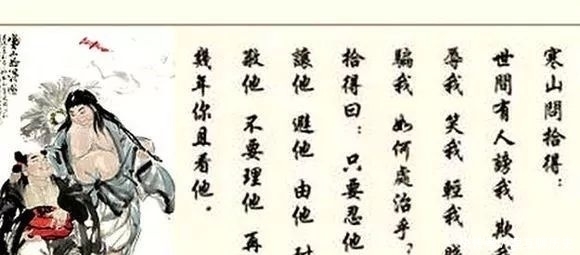 寒山問拾得：
世間有人謗我 欺我
辱我 笑我 輕我
騙我 如何處治乎？
拾得曰： 只要忍他
讓他 避他 由他
敬他 不要理他 再
幾年你且看他。